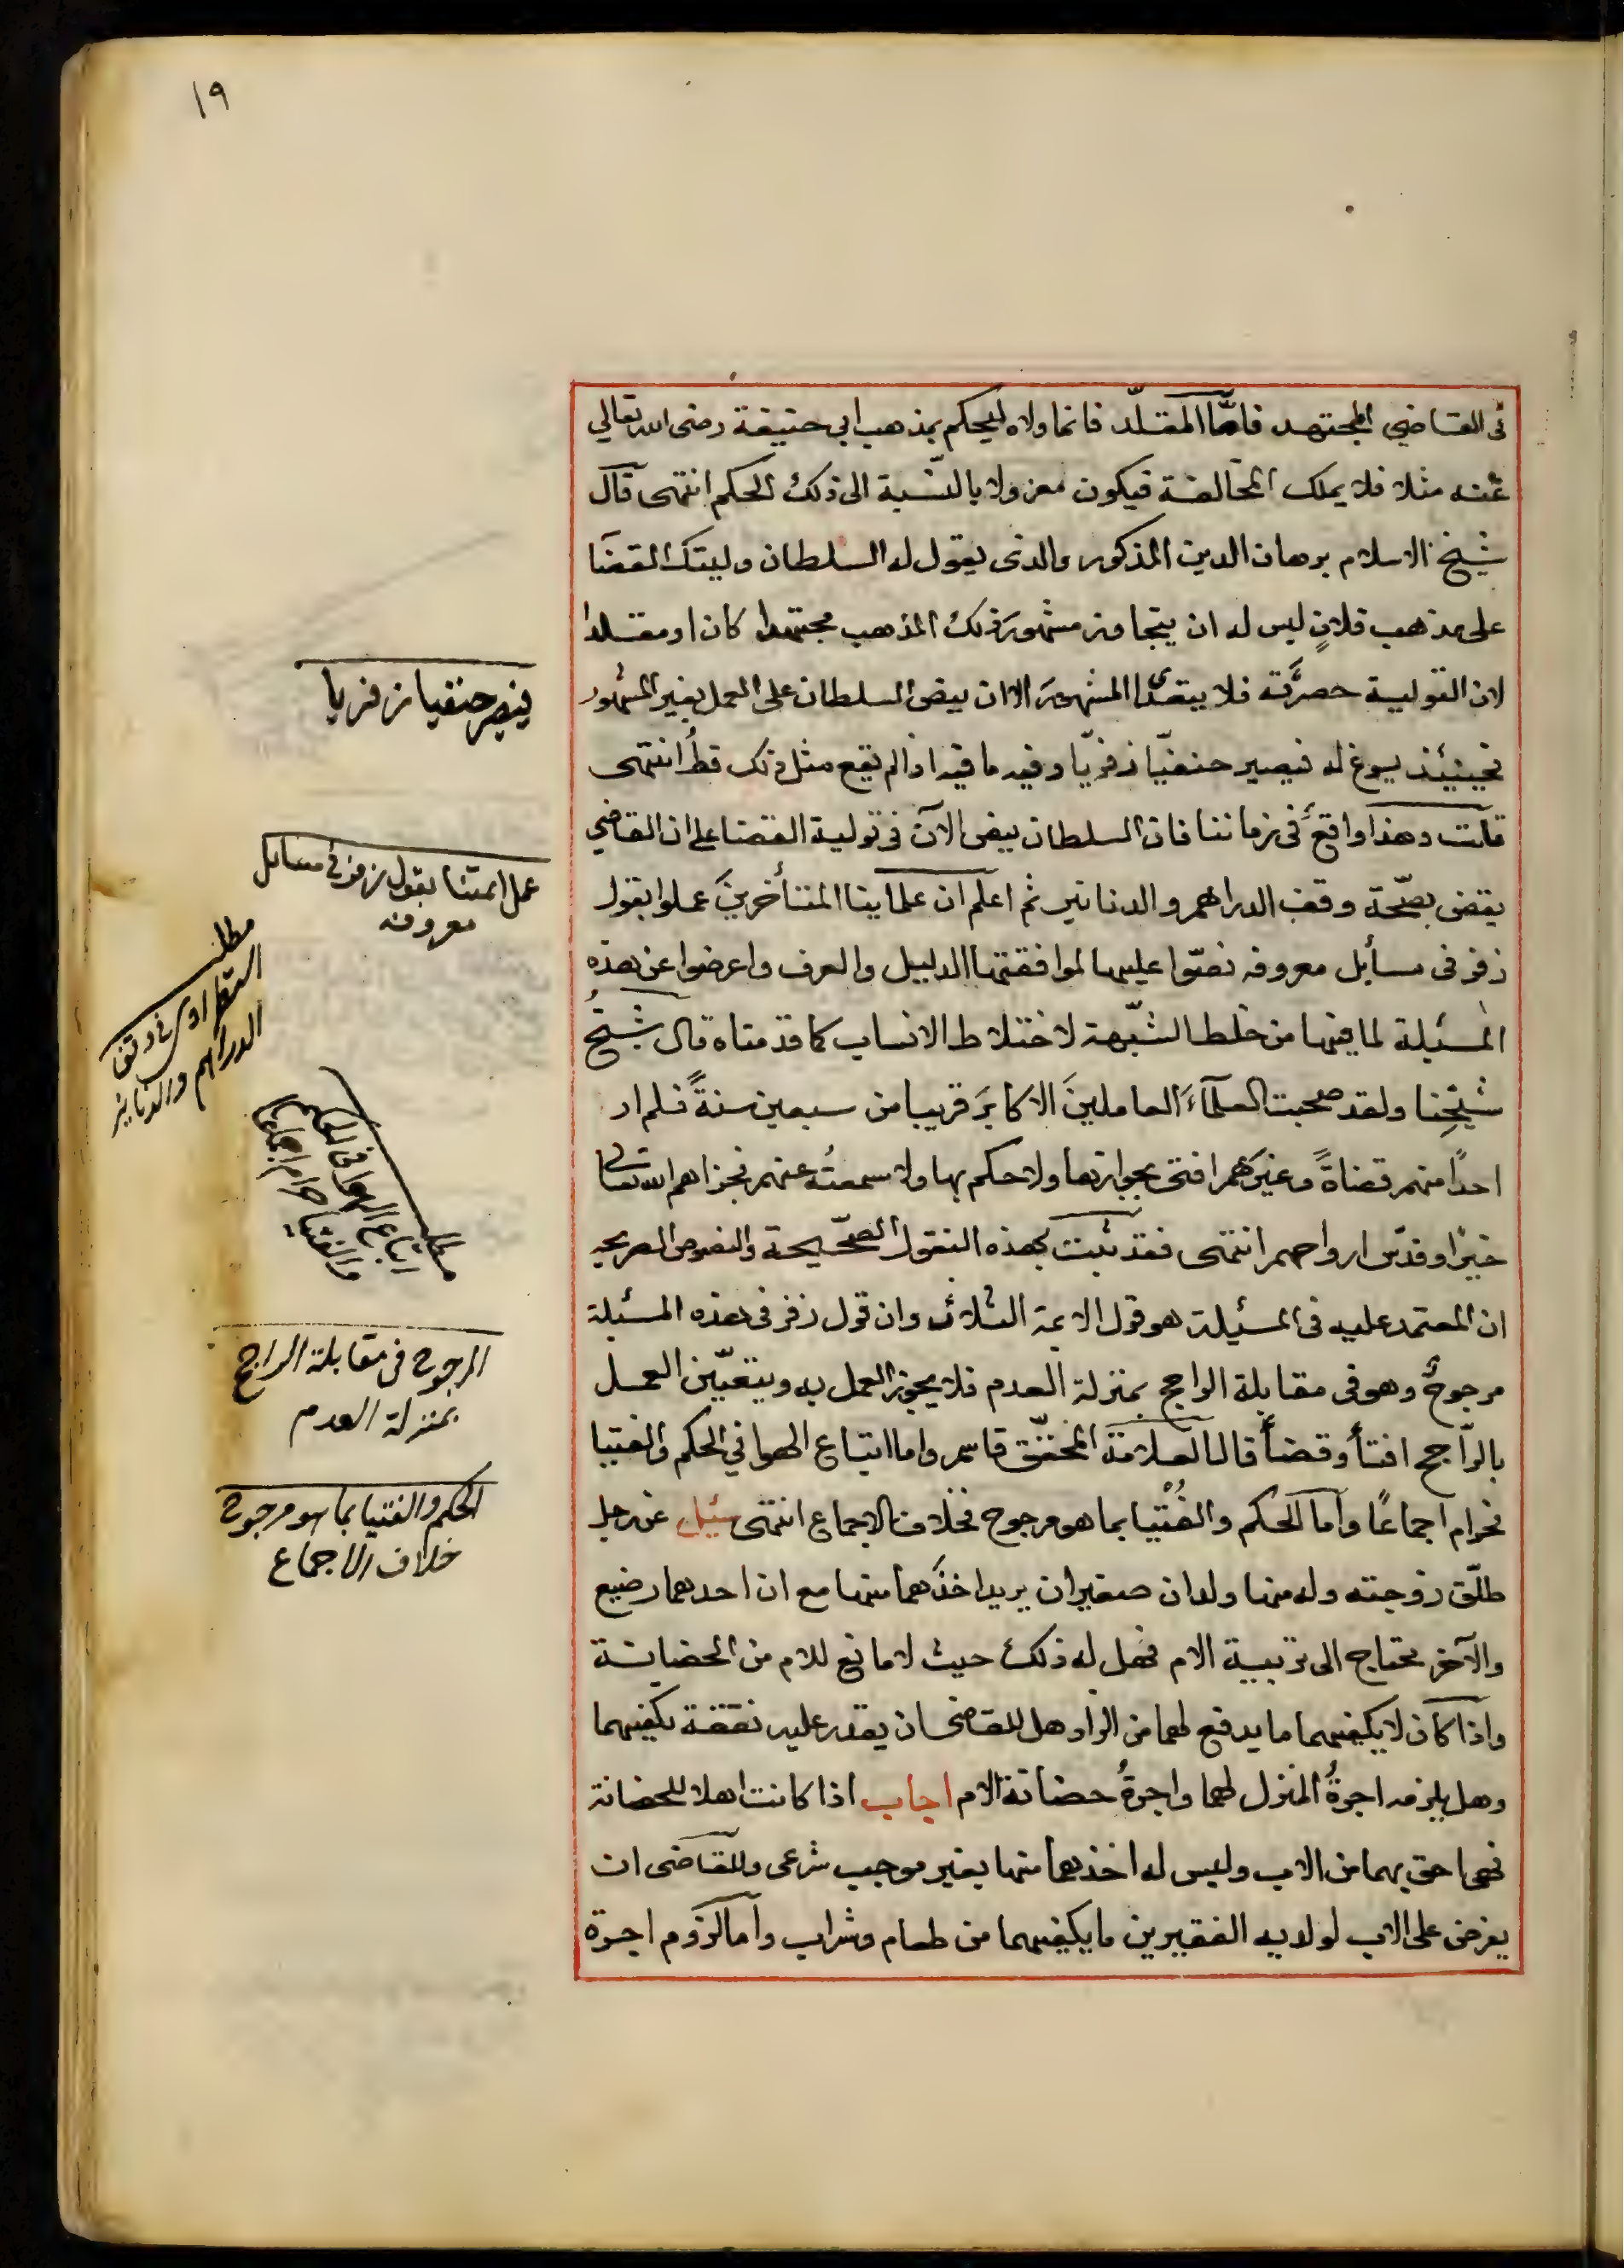 ١٩
فى القاضي المجتهد فامّا المقلّد فانما ولاه ليحكم بمذهب ابى حنيفة رضى الله تعالي
عنه مثلا فلا يملك المخالفة فيكون معزولا بالنسبة الى ذلك الحكم انتهى قال
شيخ الاسلام برهان الدين المذكور والذى يقول له السلطان وليتك القضا
على مذهب فلانٍ ليس له ان يتجاوز مشهور ذلك المذهب مجتهدا كان او مقلدا
لان التولية حصرَته فلا يتعدى المشهور الا ان ينص السلطان على العمل بغير المشهور
فحينئذ يسوغ له فيصير حنفيّا زفريّا وفيه ما فيه اذ لم يقع مثل ذلك قطُ انتهى
قلت وهذا واقعٌ فى زماننا فان السلطان ينص الآن فى تولية القضا على ان القاضي
يقضى بصحّة وقف الدراهم والدنانير ثم اعلم ان علماينا المتأخرين عملوا بقول
زفر فى مسأيل معروفه نصّوا عليها لموافقتها الدليل والعرف واعرضوا عن هذه
المسئلة لما فيها من خلط الشبهة لاختلاط الانساب كما قدمناه قال شيخُ
شيخِنا ولقد صحبت العلمآءَ العاملينَ الاكابرَ قريبا من سبعين سنةً فلم ار
احدًا منهم قضاةً وغيرَهم افتى بجوازها ولا حكم بها ولا سمعتُه عنهم فجزاهم الله تعالى
خيرًا وقدّس ارواحهم انتهى فقد ثبت بهذه النقول الصحيحة والنصوص الصريحه
ان المعتمد عليه فى المسيلة هو قول الايمة الثلاث وان قول زفر فى هذه المسئلة
مرجوحٌ وهو فى مقابلة الراجح بمنزلة العدم فلا يجوز العمل به ويتعيّن العمل
بالرّاجح افتأ وقضأ قال العلامة المحقّق قاسم واما اتباع الهوا في الحكم والفتيا
فحرام اجماعًا وأما الحكم والفُتْيا بما هو مرجوح فخلاف الاجماع انتهى سئل عن رجل
طلّق زوجته وله منها ولدان صغيران يريد اخذَهما منها مع ان احدهما رضيع
والآخر محتاج الى تربية الام فهل له ذلك حيث لا مانع للام من الحضانة
واذا كان لا يكفيهما ما يدفع لهما من الزاد هل للقاضى ان يقدر عليه نفقة تكفيهما
وهل يلزمه اجرةُ المنزل لهما واجرةُ حضانة الام اجاب اذا كانت اهلا للحضانة
فهى احق بهما من الاب وليس له اخذهما منها بغير موجب شرعى وللقاضى ان
يفرض على الاب لولديه الفقيرين ما يكفيهما من طعام وشراب وأما لزوم اجرة
فيصير حنفيا زفريا
عمل ايمتنا بقول زفر فى مسايل
معروفه
مطلب
استطرادى فى وقف
الدراهم والدنانير
مطلب
اتباع الهوا فى الحكم
والفتيا حرام اجماعا
المرجوح فى مقابلة الراجح
بمنزلة العدم
الحكم والفتيا بما هو مرجوح
خلاف الاجماع